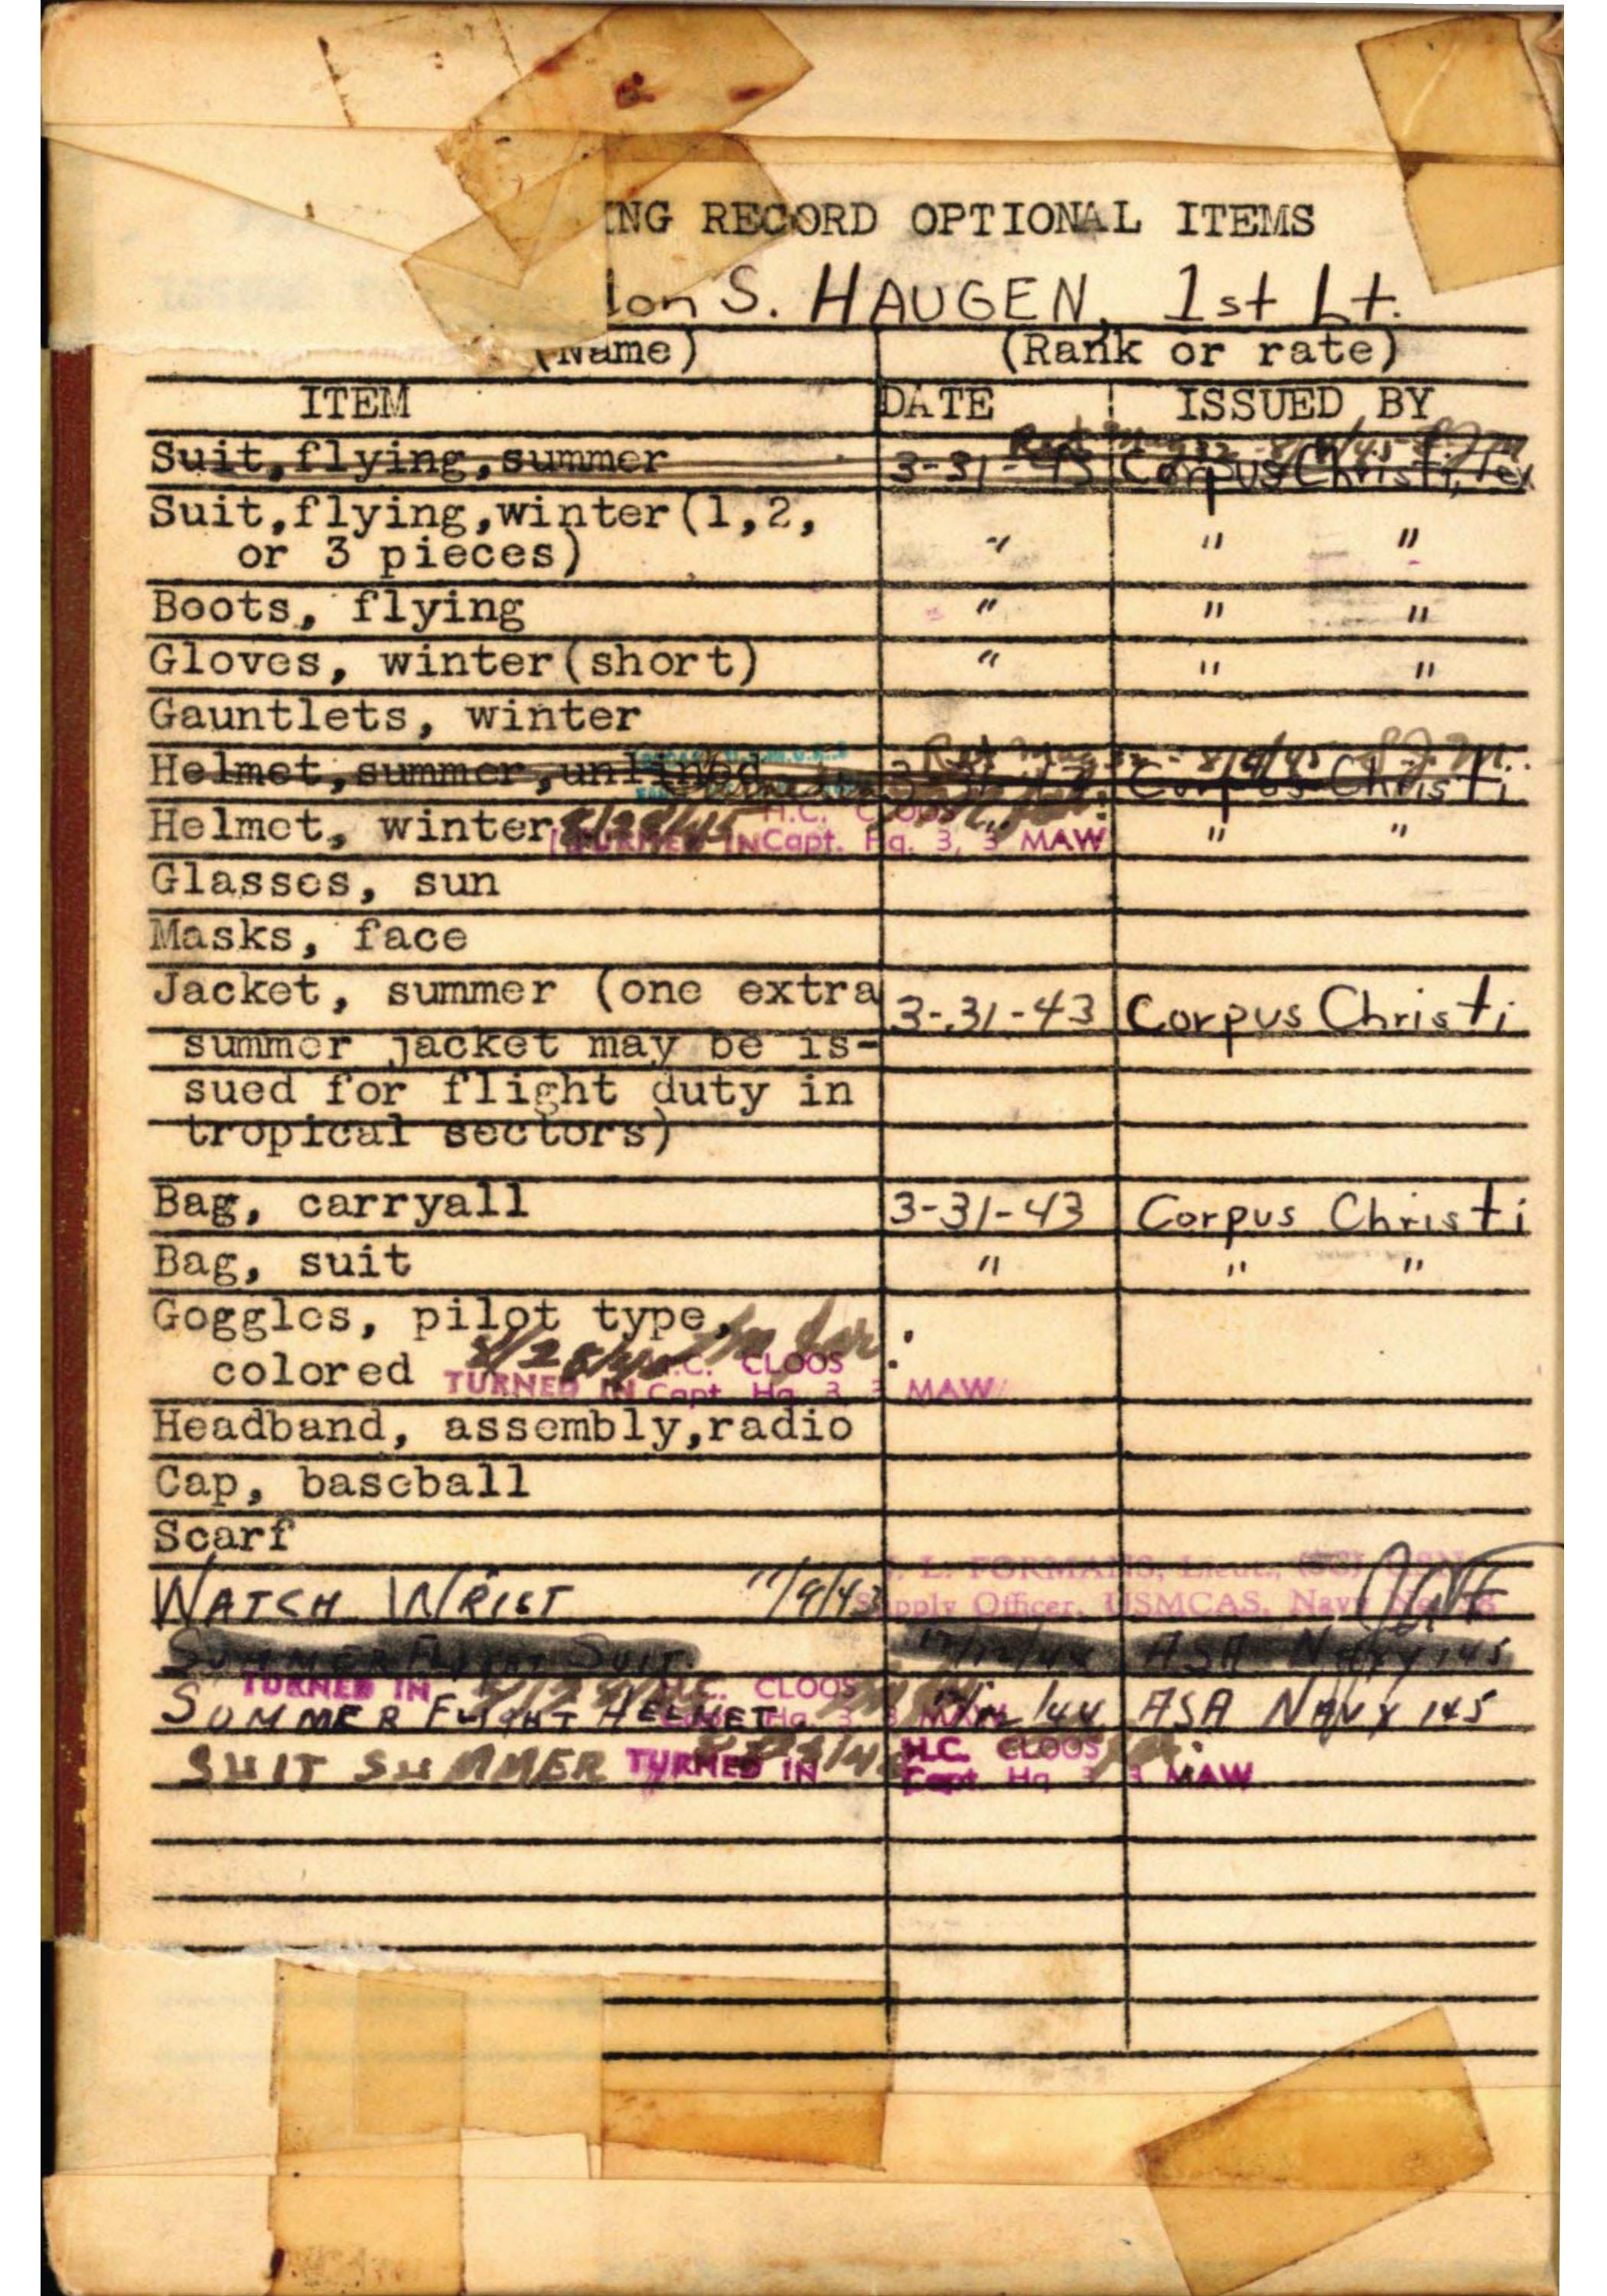 ING RECORD OPTIONAL ITEMS
lon S. HAUGEN, 1st Lt.
(Name) (Rank or rate)
ITEM DATE ISSUED BY
Suit, flying, summer 3-31-43 Corpus Christi, Tex
Suit, flying, winter (1,2, " " "
or 3 pieces)
Boots, flying " " "
Gloves, winter (short) " " "
Gauntlets, winter
Helmet, summer, unlined Corpus Christi
Helmet, winter 8/28/45 " "
TURNED IN H.C. CLOOS
Capt. Hq. 3, 3 MAW
Glasses, sun
Masks, face
Jacket, summer (one extra 3-31-43 Corpus Christi
summer jacket may be is-
sued for flight duty in
tropical sectors)
Bag, carryall 3-31-43 Corpus Christi
Bag, suit " " "
Goggles, pilot type,
colored 8/28/45 H.C. CLOOS
TURNED IN Capt. Hq. 3, 3 MAW
Headband, assembly, radio
Cap, baseball
Scarf
L. FORMANS, Lieut., (SC) USN
WATCH WRIST 11/9/43 Supply Officer, USMCAS, Navy
SUMMER FLIGHT SUIT. 12/12/44 ASA NAVY 145
TURNED IN H.C. CLOOS
SUMMER FLIGHT HELMET 12/12/44 ASA NAVY 145
Hq. 3, 3 MAW
SUIT SUMMER TURNED IN H.C. CLOOS
Capt. Hq 3, 3 MAW